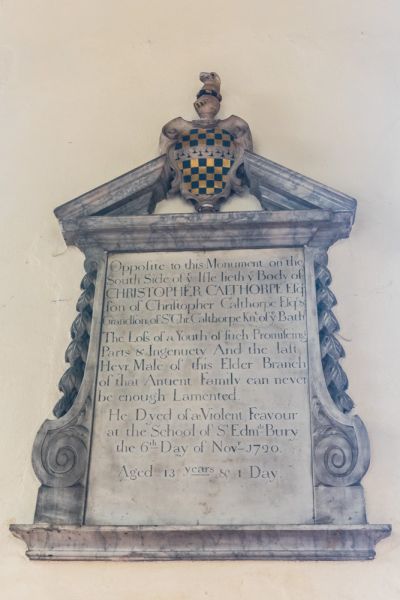 Opposite to this Monument on the
South Side of yͤ Isle lieth yͤ Body of
CHRISTOPHER CALTHORPE Esqͬ
son of Christopher Calthorpe Esqͬ &
Grandson of Sͬ Chr. Calthorpe Knͭ of yͤ Bath
The Loss of a Youth of such Promiseing
Parts & Ingenuety And the last
Heyr Male of this Elder Branch
of that Antient Family can never
be enough Lamented.
He Dyed of a Violent Feavour
at the School of Sͭ Edmͩˢ Bury
the 6ᵗʰ Day of Novʳ 1720.
Aged 13 years & 1 Day